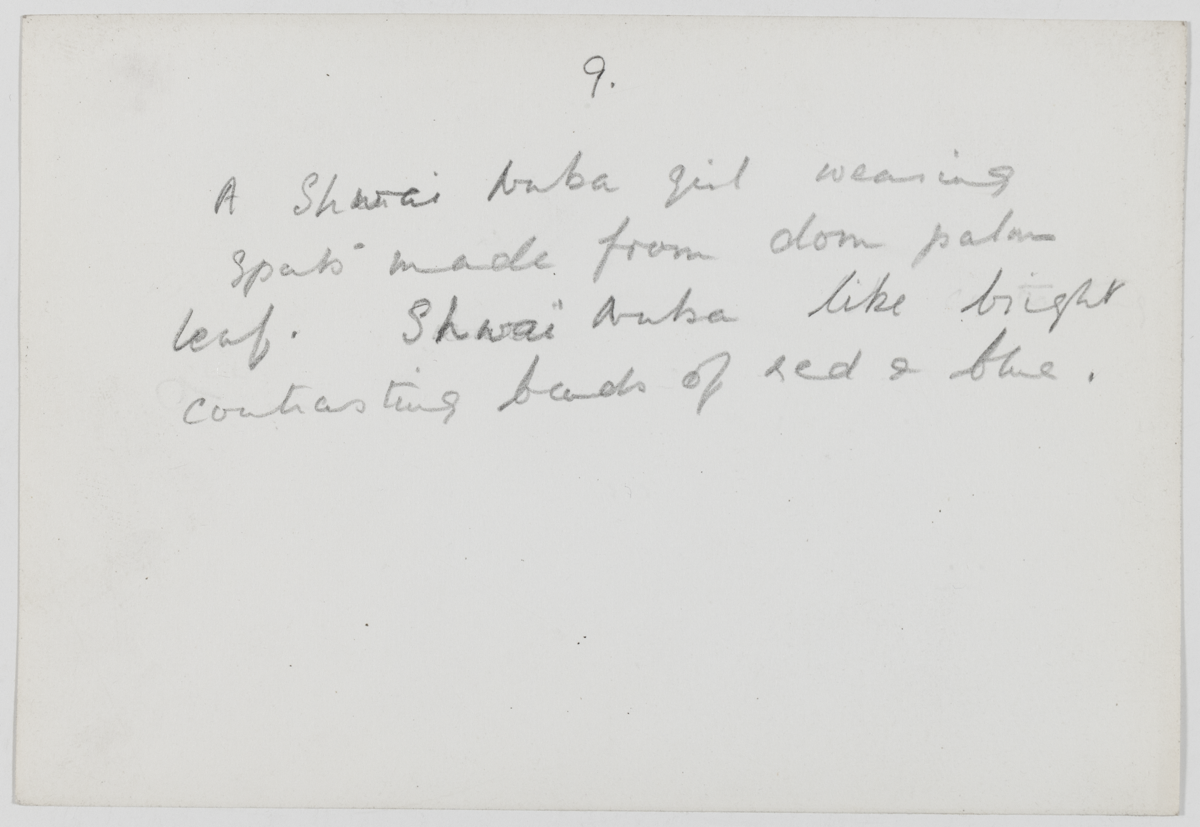 9.
A Shwai Nuba girl wearing
spats made from dom palm
leaf. Shwai Nuba like bright
contrasting bands of red & blue.